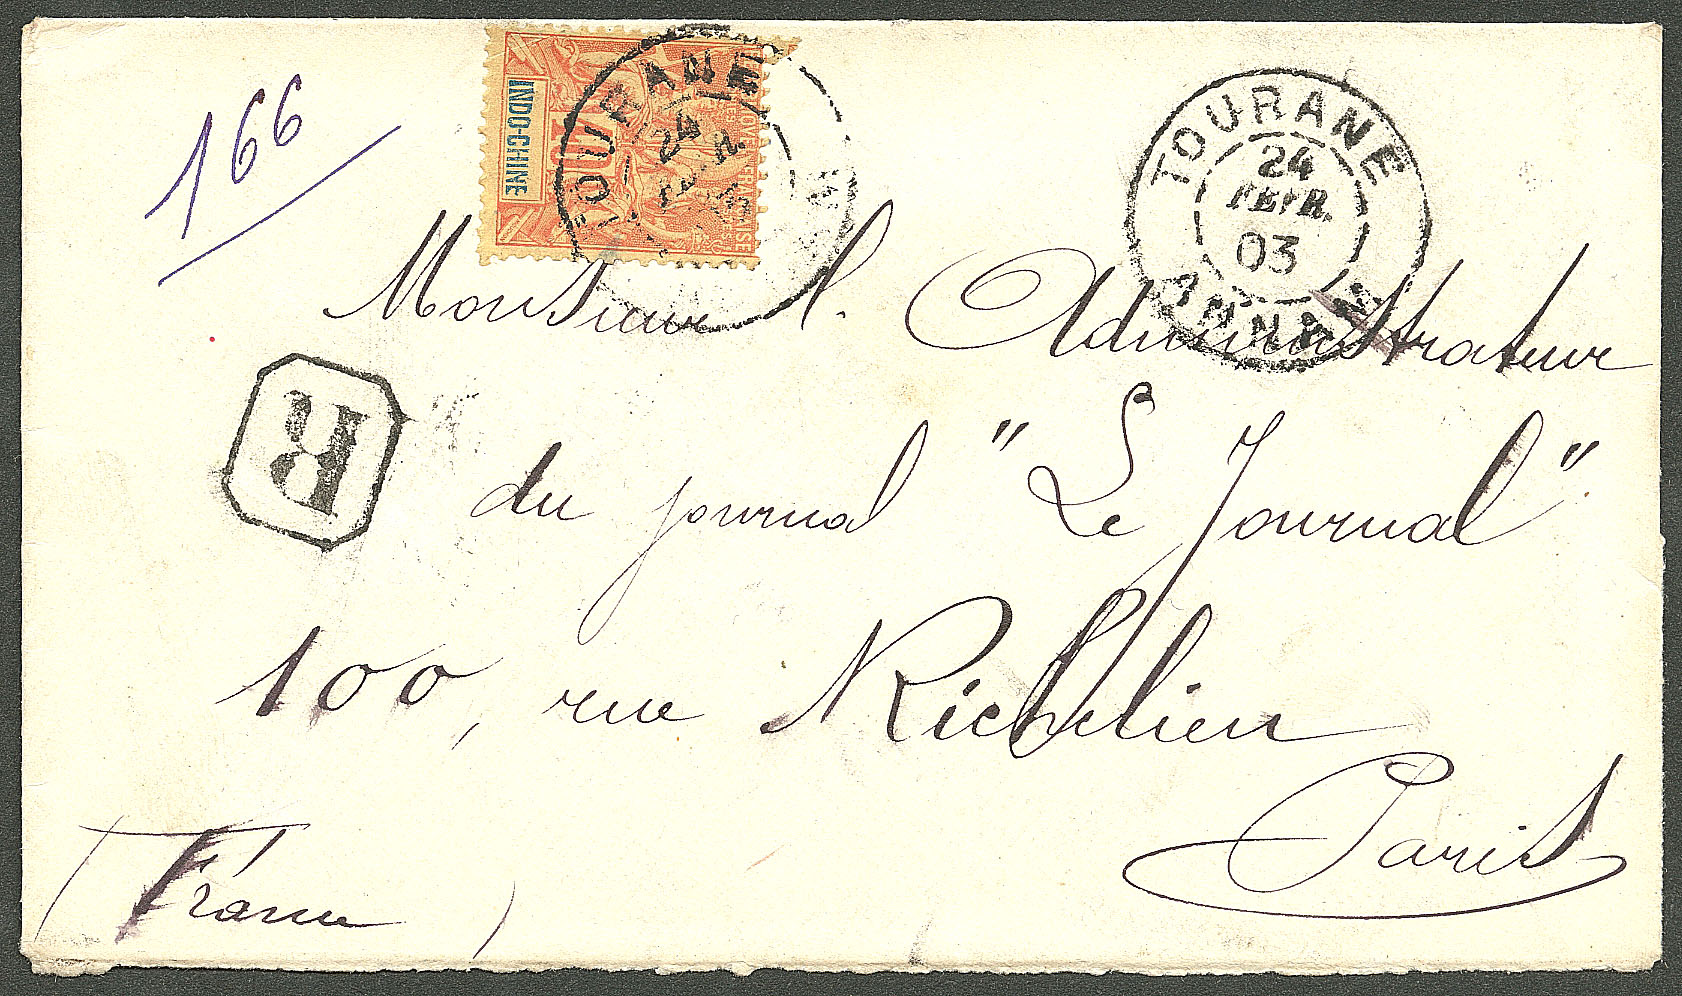 166
INDO-CHINE
40
TOURANE
24
TOURANE
24
FEVR.
03
ANNAM
R
Monsieur l. Administrateur
du journal "Le Journal"
100, rue Richelieu
Paris
(France)